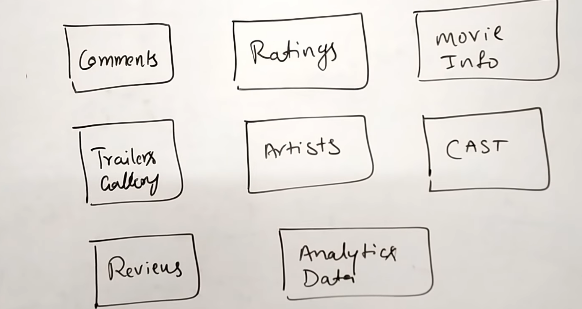 Comments
Ratings
Movie
Info
Trailers
Gallery
Artists
CAST
Reviews
Analytics
Data